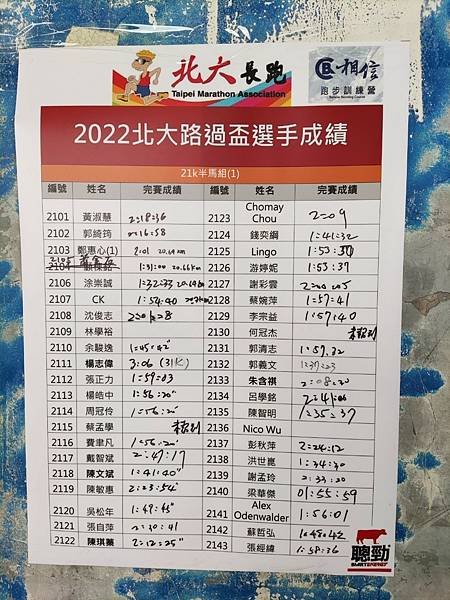 北大長跑
Taipei Marathon Association
相信
跑步訓練營
2022北大路過盃選手成績
21k半馬組(1)
編號 姓名 完賽成績 編號 姓名 完賽成績
2101 黃淑慧 2:18:36 2123 Chomay Chou 2:09
2102 郭綺筠 2:16:58 2124 錢奕綱 1:41:32
2103 鄭惠心(1) 2:01 20.64km 2125 Lingo 1:53:37
2104 1:31:00 20.66km 2126 游婷妮 1:53:37
2106 涂崇誠 1:32:33 2127 謝彩雲
2107 CK 1:54:40 2128 蔡婉萍 1:57:41
2108 沈俊志 2:01:28 2129 李宗益 1:57:40
2109 林學裕 2130 何冠杰
2110 余駿逸 1:45:42" 2131 郭清志 1:57:32
2111 楊志偉 3:06 (31K) 2132 郭義文 1:37:23
2112 張正力 1:59:03 2133 朱含祺 2:08:20
2113 楊皓中 1:56:20" 2134 呂學銘
2114 周冠伶 1:56:20" 2135 陳智明 1:35:37
2115 蔡孟學 2136 Nico Wu
2116 費聿凡 1:56:20" 2137 彭秋萍 2:24:12
2117 戴智斌 2:47:17 2138 洪世崑 1:34:30
2118 陳文斌 1:41:40" 2139 謝孟玲 2:33:20
2119 陳敏惠 2:23:54" 2140 梁華傑 01:55:59
2120 吳松年 1:49:45" 2141 Alex Odenwalder 1:56:01
2121 張自萍 2:30:41 2142 蘇哲弘 1:48:42
2122 陳琪蓁 2:12:25" 2143 張經緯 1:58:36
聰勁
SMARTENERGY